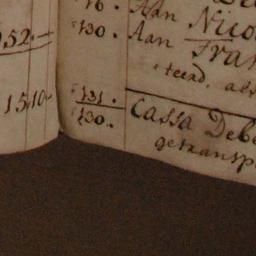 76. Aan
Nico
952.—
130. Aan Fran
teerd. abs
1510—
131. Cassa Debe
130. getransp